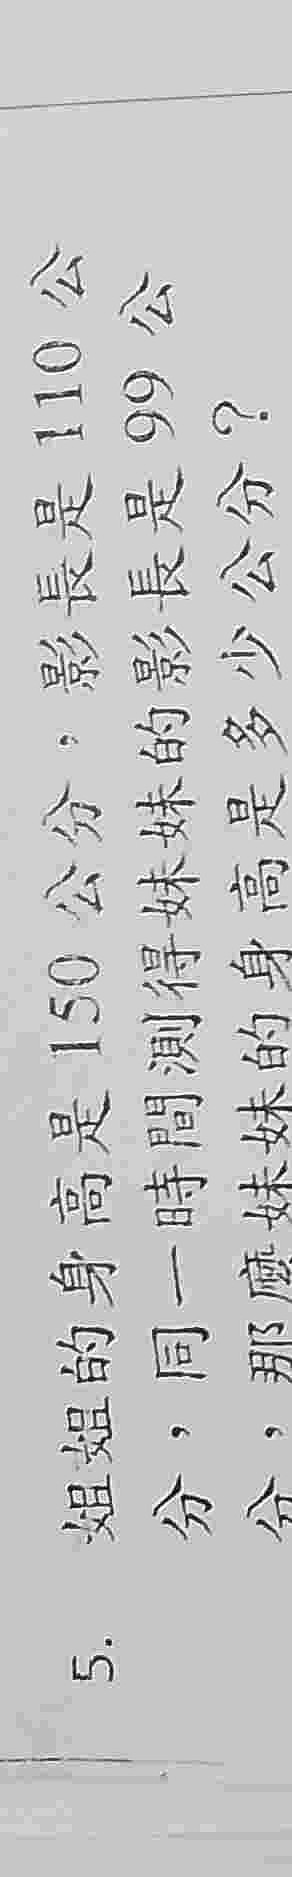 5. 姐姐的身高是 150 公分，影長是 110 公
分，同一時間測得妹妹的影長是 99 公
分，那麼妹妹的身高是多少公分？